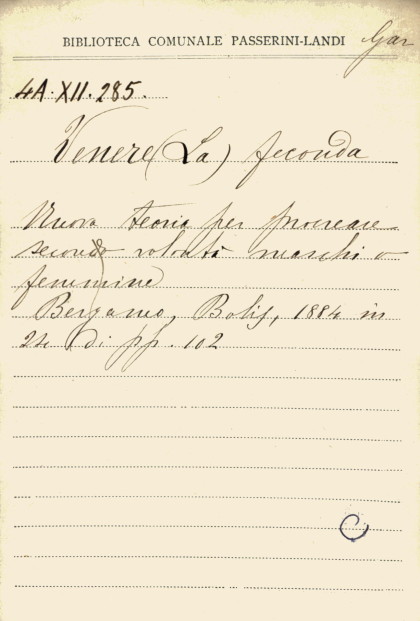 BIBLIOTECA COMUNALE PASSERINI-LANDI Gar
4A·XII·285.
Venere (La) feconda
Nuova teoria per procreare
secondo volontà maschi o
femmine
Bergamo, Bolis, 1884 in
24 di pp. 102
C